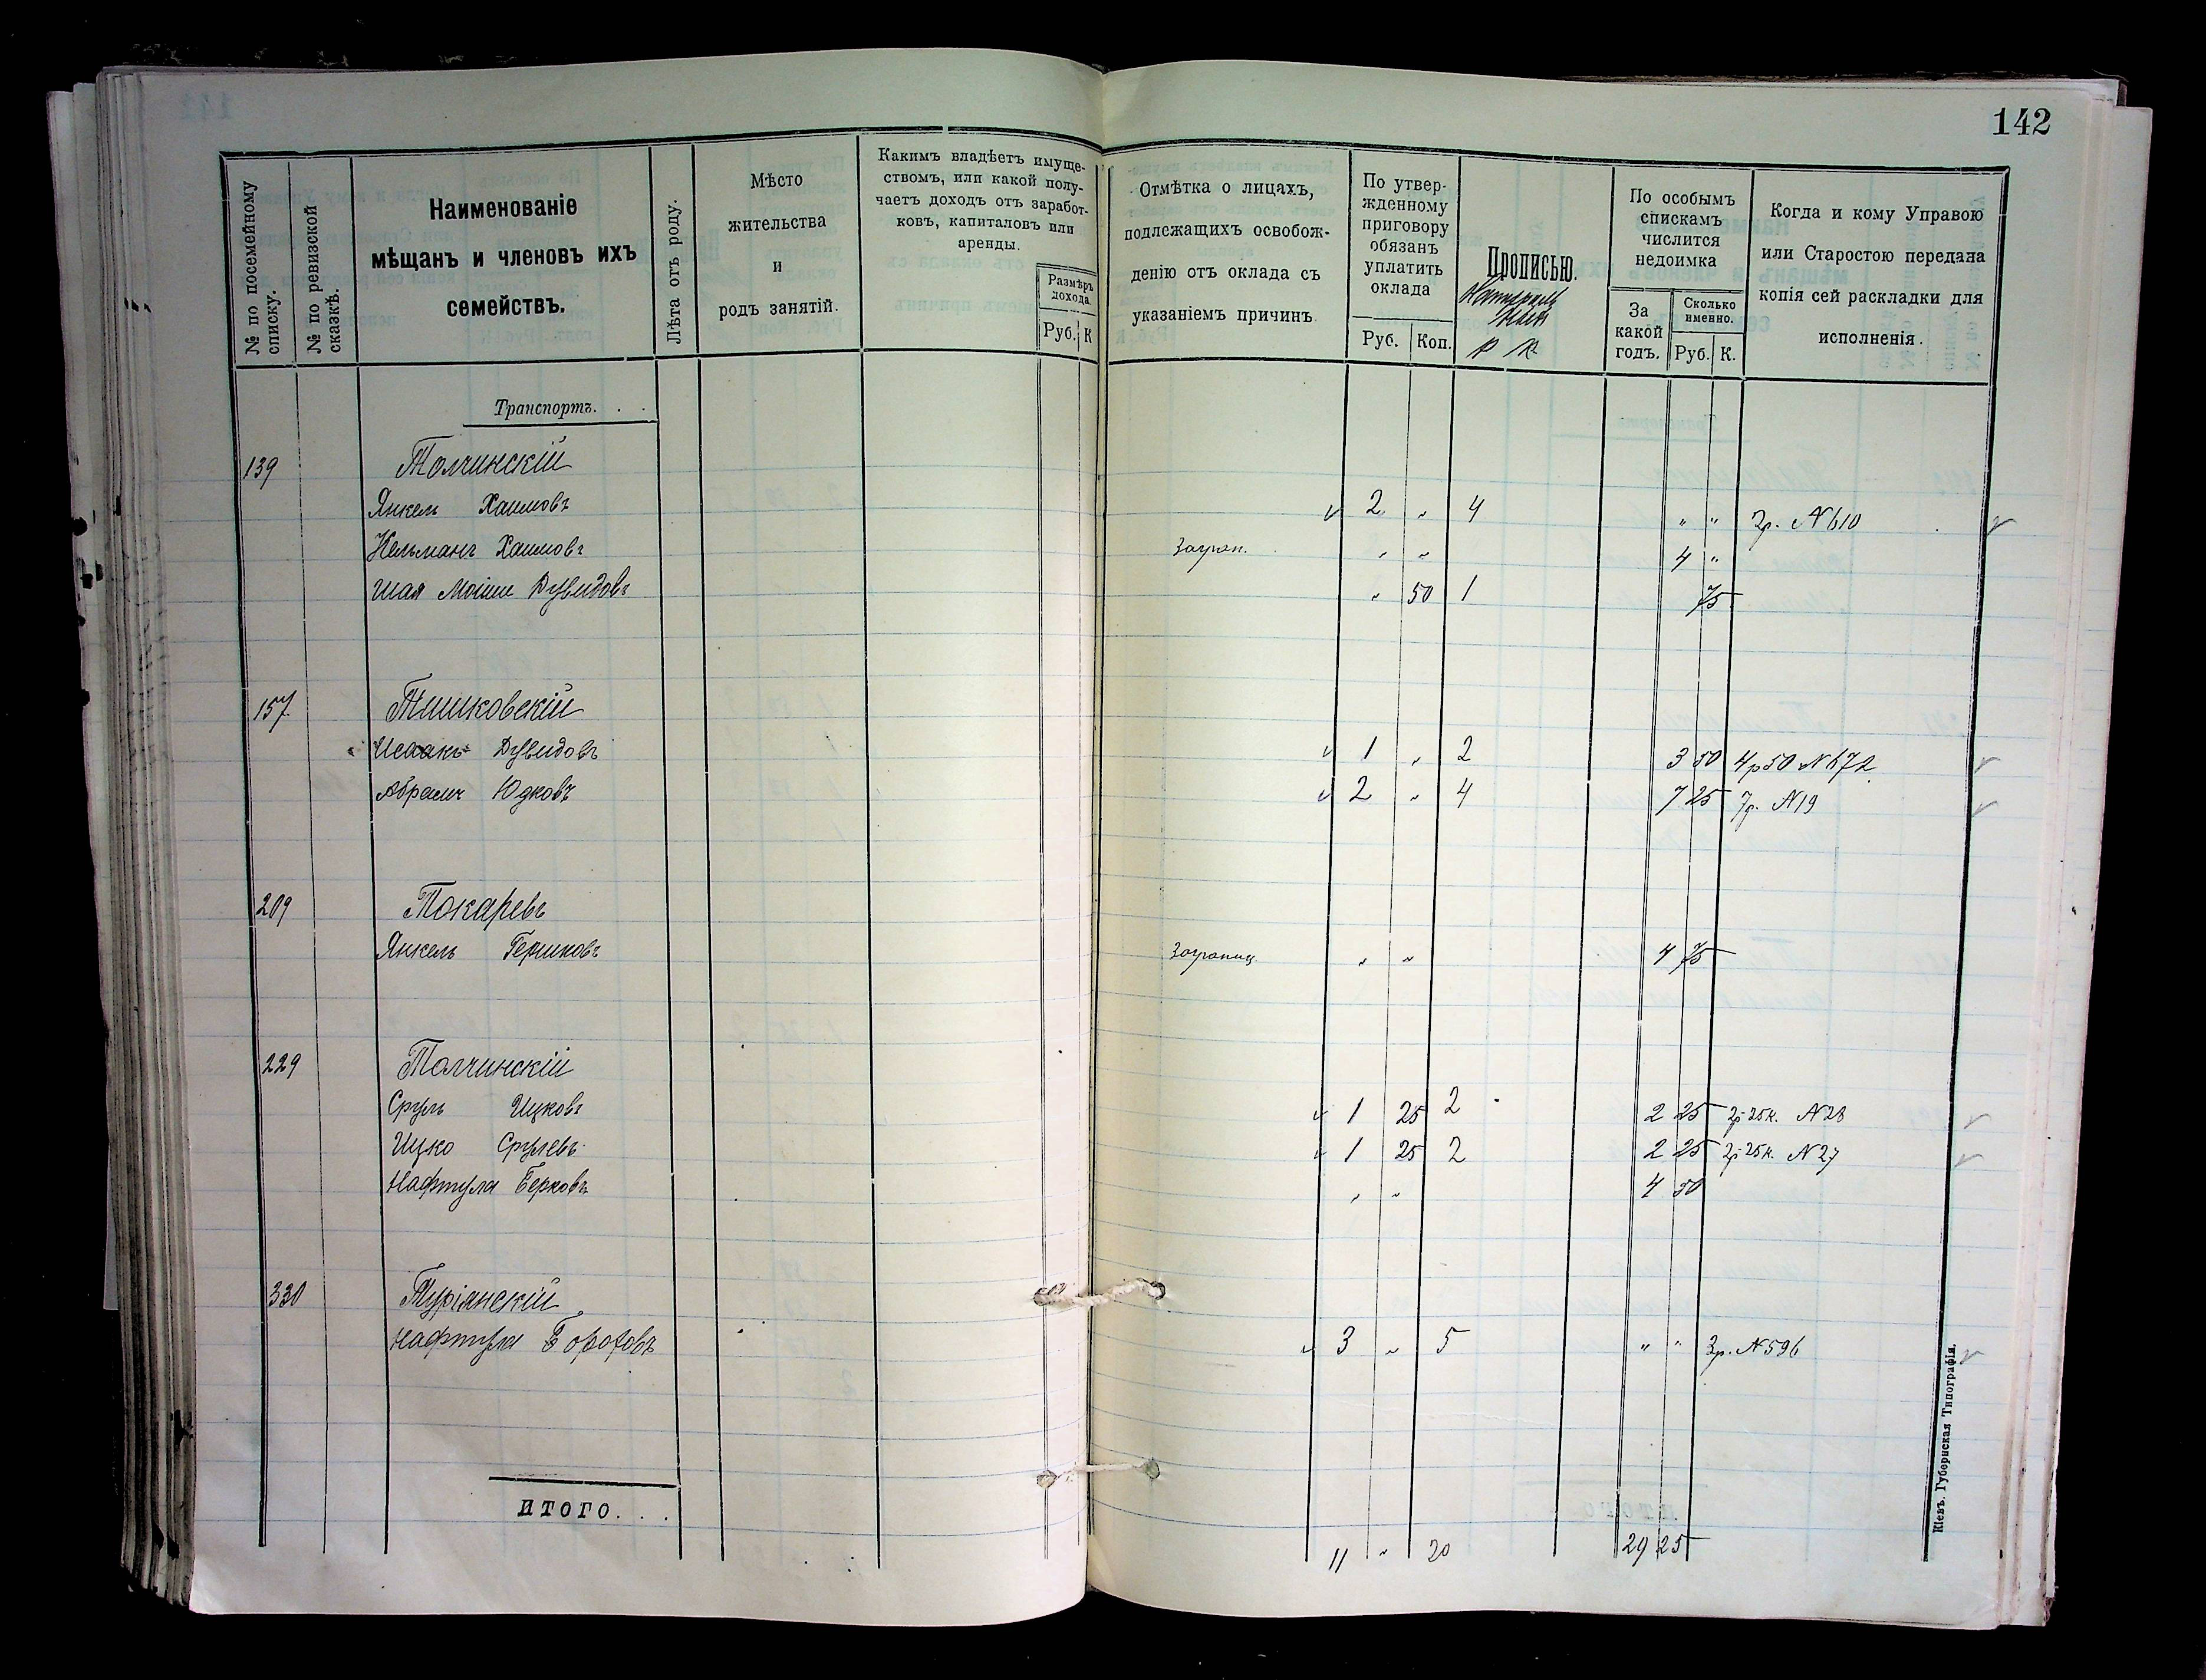 142
№ по посемейному списку.
№ по ревизской сказкѣ.
Наименованіе мѣщанъ и членовъ ихъ семействъ.
Лѣта отъ роду.
Мѣсто жительства и родъ занятій.
Какимъ владѣетъ имуще-
ствомъ, или какой полу-
чаетъ доходъ отъ заработ-
ковъ, капиталовъ или
аренды.
Размѣръ дохода.
Руб. К
Отмѣтка о лицахъ,
подлежащихъ освобож-
денію отъ оклада съ
указаніемъ причинъ
По утвер-
жденному
приговору
обязанъ
уплатить
оклада
Руб. Коп.
Прописью.
Р К
По особымъ
спискамъ
числится
недоимка
За какой годъ.
Сколько именно.
Руб. К.
Когда и кому Управою
или Старостою передана
копія сей раскладки для
исполненія.
Транспортъ. . .
139 Толчинскій
Янкель Хаимовъ 2 „ 4 „ „ 2р. N 610
Кельманъ Хаимовъ Загран. „ „ 4 „
Шая Моише Дувидовъ „ 50 1 75
157 Тишковскій
Исаакъ Дувидовъ 1 „ 2 3 50 4р50 N 672
Абрамъ Юдковъ 2 „ 4 7 25 7р. N 19
209 Токаревъ
Янкель Гершковъ Заграниц. „ „ 4 75
229 Толчинскій
Сруль Ицковъ 1 25 2 2 25 2р 25к. N 28
Ицко Срулевъ 1 25 2 2 25 2р 25к. N 27
Нафтула Берковъ „ „ 4 50
330 Туріянскій
Нафтула Бороховъ 3 „ 5 „ „ 3р. N 596
ИТОГО. . .
11 „ 20 29 25
Кіевъ. Губернская Типографія.